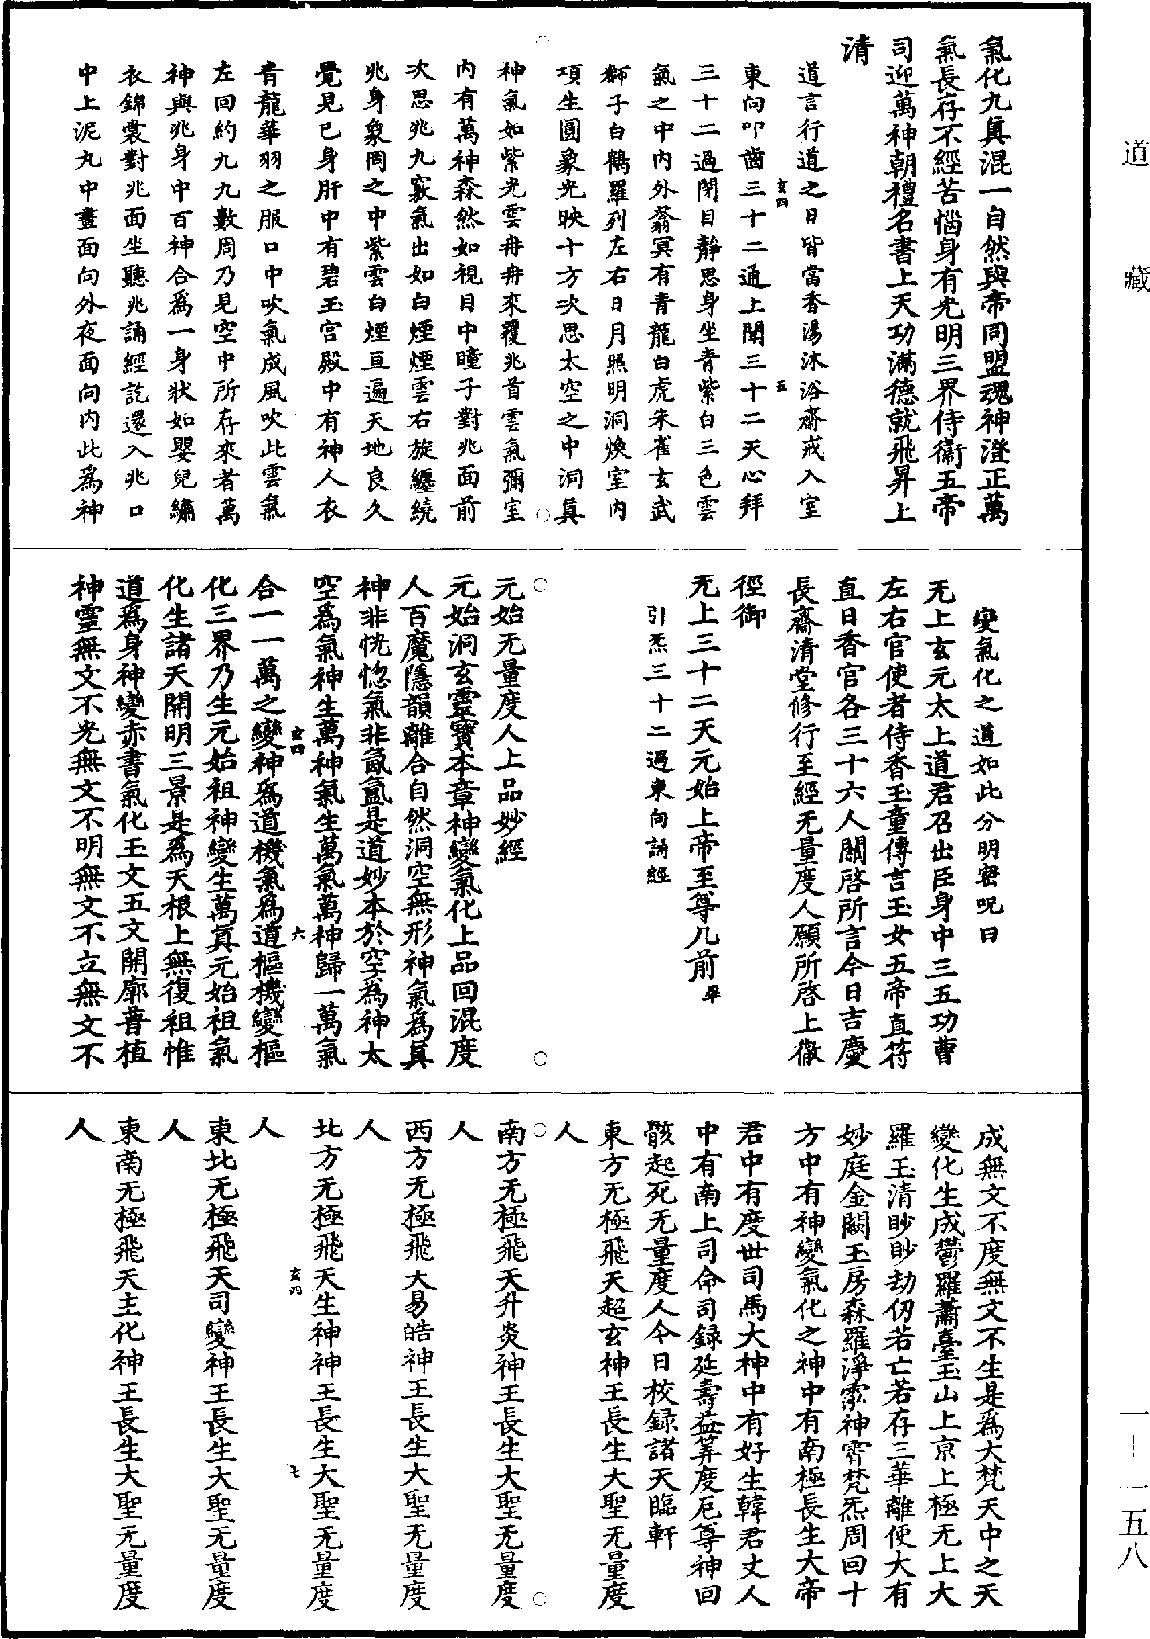 道藏
氣化九真混一自然與帝同盟魂神澄正萬
氣長存不經苦惱身有光明三界侍衛五帝
司迎萬神朝禮名書上天功滿德就飛昇上
清
道言行道之日皆當香湯沐浴齋戒入室
東向叩齒三十二通上聞三十二天心拜
三十二過閉目靜思身坐青紫白三色雲
氣之中內外蓊冥有青龍白虎朱雀玄武
獅子白鶴羅列左右日月照明洞煥室內
項生圓象光映十方次思太空之中洞真
神氣如紫光雲冉冉來覆兆首雲氣彌室
內有萬神森然如視目中瞳子對兆面前
次思兆九竅氣出如白煙煙雲右旋纏繞
兆身象罔之中紫雲白煙亘遍天地良久
覺見已身肝中有碧玉宮殿中有神人衣
青龍華羽之服口中吹氣成風吹此雲氣
左回約九九數周乃見空中所存來者萬
神與兆身中百神合為一身狀如嬰兒繡
衣錦裳對兆面坐聽兆誦經訖還入兆口
中上泥丸中晝面向外夜面向內此為神
玄四
五
變氣化之道如此分明密呪曰
无上玄元太上道君召出臣身中三五功曹
左右官使者侍香玉童傳言玉女五帝直符
直日香官各三十六人關啓所言今日吉慶
長齋清堂修行至經无量度人願所啓上徹
徑御
无上三十二天元始上帝至尊几前畢
引炁三十二過東向誦經
元始无量度人上品妙經
元始洞玄靈寶本章神變氣化上品回混度
人百魔隱韻離合自然洞空無形神氣為真
神非恍惚氣非氤氳是道妙本於空為神太
空為氣神生萬神氣生萬氣萬神歸一萬氣
合一一萬之變神為道機氣為道樞機變樞
化三界乃生元始祖神變生萬真元始祖氣
化生諸天開明三景是為天根上無復祖惟
道為身神變赤書氣化玉文五文開廓普植
神靈無文不光無文不明無文不立無文不
玄四
六
成無文不度無文不生是為大梵天中之天
變化生成鬱羅蕭臺玉山上京上極无上大
羅玉清眇眇劫仞若亡若存三華離便大有
妙庭金闕玉房森羅淨泓神霄梵炁周回十
方中有神變氣化之神中有南極長生大帝
君中有度世司馬大神中有好生韓君丈人
中有南上司命司録延壽益筭度厄尊神回
骸起死无量度人今日校録諸天臨軒
東方无極飛天超玄神王長生大聖无量度
人
南方无極飛天升炎神王長生大聖无量度
人
西方无極飛大易皓神王長生大聖无量度
人
北方无極飛天生神神王長生大聖无量度
人
東北无極飛天司變神王長生大聖无量度
人
東南无極飛天主化神王長生大聖无量度
人
玄四
七
一—一五八